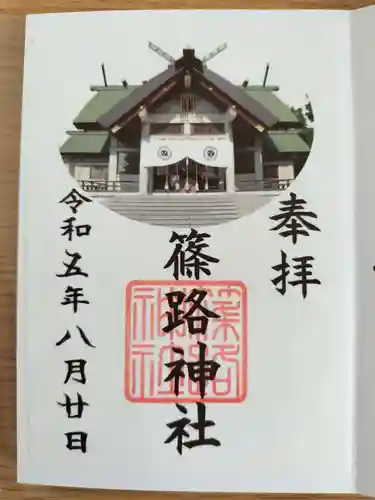 奉拝
篠路神社
篠路神社
令和五年八月廿日